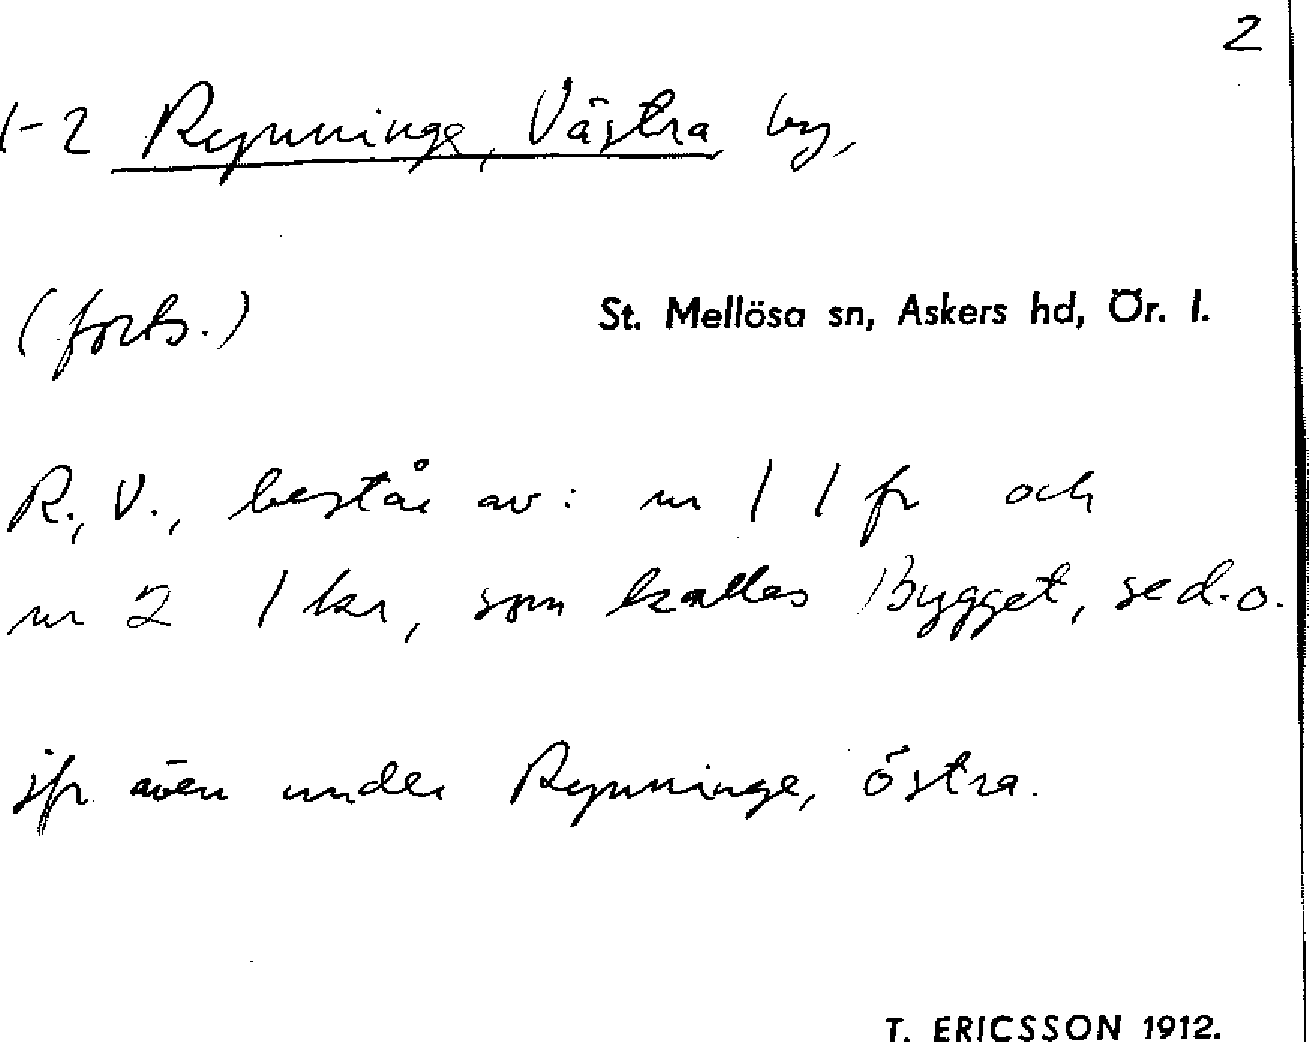 2
1-2 Rynninge, Västra, by,
(forts.)
St. Mellösa sn, Askers hd, Ör. l.
R., V., består av: nr 1 1 fr och
nr 2 1 kr, som kallas Bygget, se d.o.
jfr även under Rynninge, östra.
T. ERICSSON 1912.